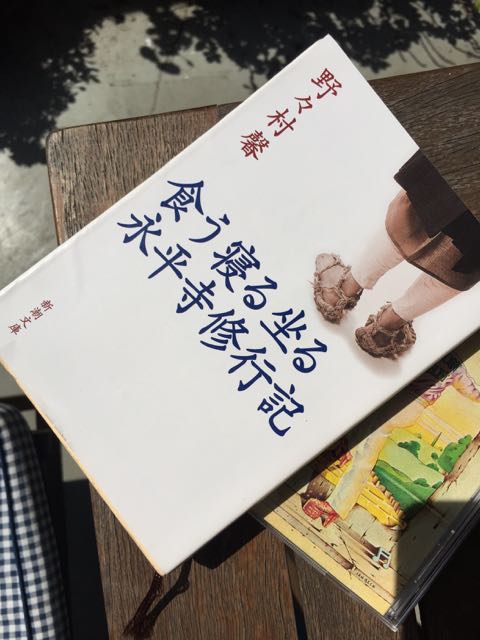 野々村馨
食う寝る坐る
永平寺修行記
新潮文庫